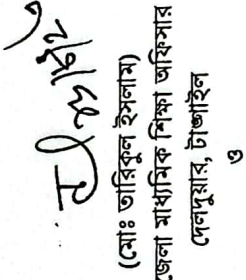 (মোঃ তারিকুল ইসলাম)
জেলা মাধ্যমিক শিক্ষা অফিসার
দেলদুয়ার, টাঙ্গাইল
ও